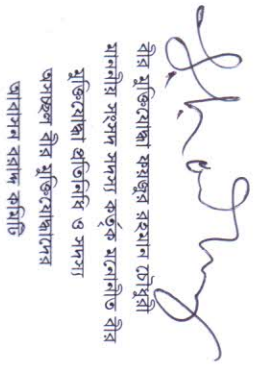 বীর মুক্তিযোদ্ধা ফয়জুর রহমান চৌধুরী
মাননীয় সংসদ সদস্য কর্তৃক মনোনিত বীর
মুক্তিযোদ্ধা প্রতিনিধি ও সদস্য
অসচ্ছল বীর মুক্তিযোদ্ধাদের
আবাসন বরাদ্দ কমিটি